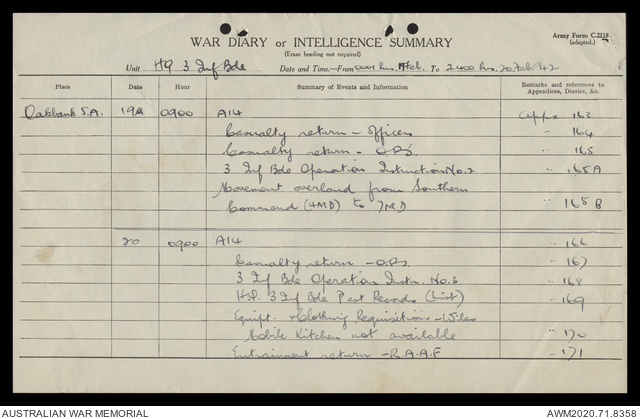 Army Form C.2118
(adapted.)
WAR DIARY or INTELLIGENCE SUMMARY
(Erase heading not required)
Unit HQ 3 Inf Bde Date and Time.—From 0001 hrs. Feb. To 2400 hrs. 20 Feb 42
Place Date Hour Summary of Events and Information Remarks and references to Appendices, Diaries, &c.
Oakbank S.A. 19 0900 A14 Appx 163
Casualty return - Officers " 164
Casualty return - O.Rs. " 165
3 Inf Bde Operation Instruction No. 2 " 165A
Movement overland from Southern
Command (4MD) to 7MD " 165B
20 0900 A14 " 166
Casualty return - O.Rs. " 167
3 Inf Bde Operation Instn. No. 3 " 168
H.Q. 3 Inf Bde Past Records (List) " 169
Equipt. & Clothing Requisition -
Mobile Kitchen not available " 170
Entrainment return - R.A.A.F " 171
AUSTRALIAN WAR MEMORIAL AWM2020.71.8358